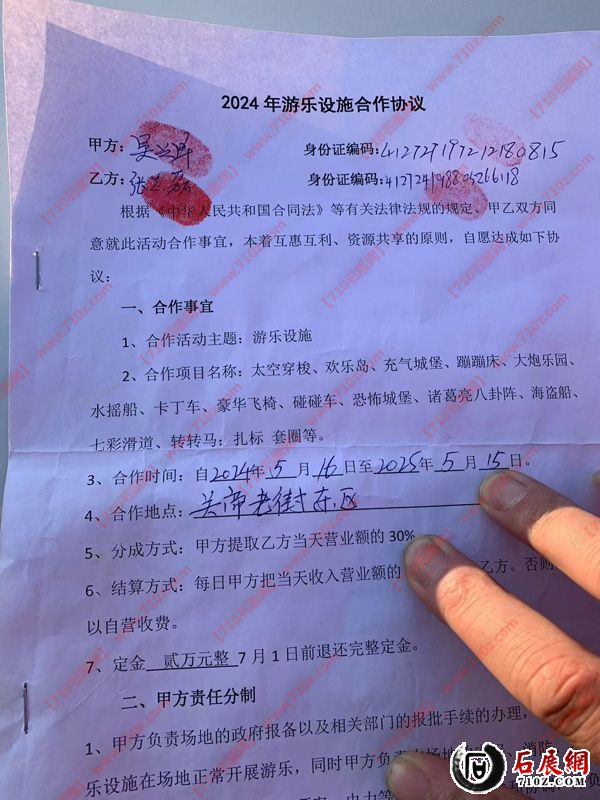 2024年游乐设施合作协议
甲方： 身份证编码：412729197212180815
乙方： 身份证编码：
根据《中华人民共和国合同法》等有关法律法规的规定、甲乙双方同
意就此活动合作事宜，本着互惠互利、资源共享的原则，自愿达成如下协
议：
一、合作事宜
1、合作活动主题：游乐设施
2、合作项目名称：太空穿梭、欢乐岛、充气城堡、蹦蹦床、大炮乐园、
水摇船、卡丁车、豪华飞椅、碰碰车、恐怖城堡、诸葛亮八卦阵、海盗船、
七彩滑道、转转马：扎标 套圈等。
3、合作时间：自2024年5月16日至2025年5月15日。
4、合作地点：关帝老街东区
5、分成方式：甲方提取乙方当天营业额的30%
6、结算方式：每日甲方把当天收入营业额的 乙方。否则
以自营收费。
7、定金 贰万元整 7月1日前退还完整定金。
二、甲方责任分制
1、甲方负责场地的政府报备以及相关部门的报批手续的办理，
乐设施在场地正常开展游乐，同时甲方负责
石展網
710z.com
【710石展网】
www.710z.com